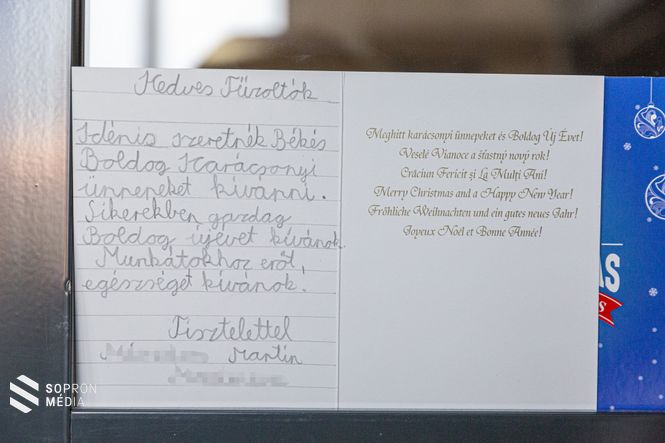 Kedves Tűzoltók
Idénis szeretnék Békés
Boldog Karácsonyi
ünnepeket kívánni.
Sikerekben gazdag
Boldog újévet kívánok.
Munkátokhoz erőt,
egészséget kívánok.
Tisztelettel
Martin
Meghitt karácsonyi ünnepeket és Boldog Új Évet!
Veselé Vianoce a šťastný nový rok!
Crăciun Fericit și La Mulți Ani!
Merry Christmas and a Happy New Year!
Fröhliche Weihnachten und ein gutes neues Jahr!
Joyeux Noël et Bonne Année!
AS
SOPRON
MÉDIA